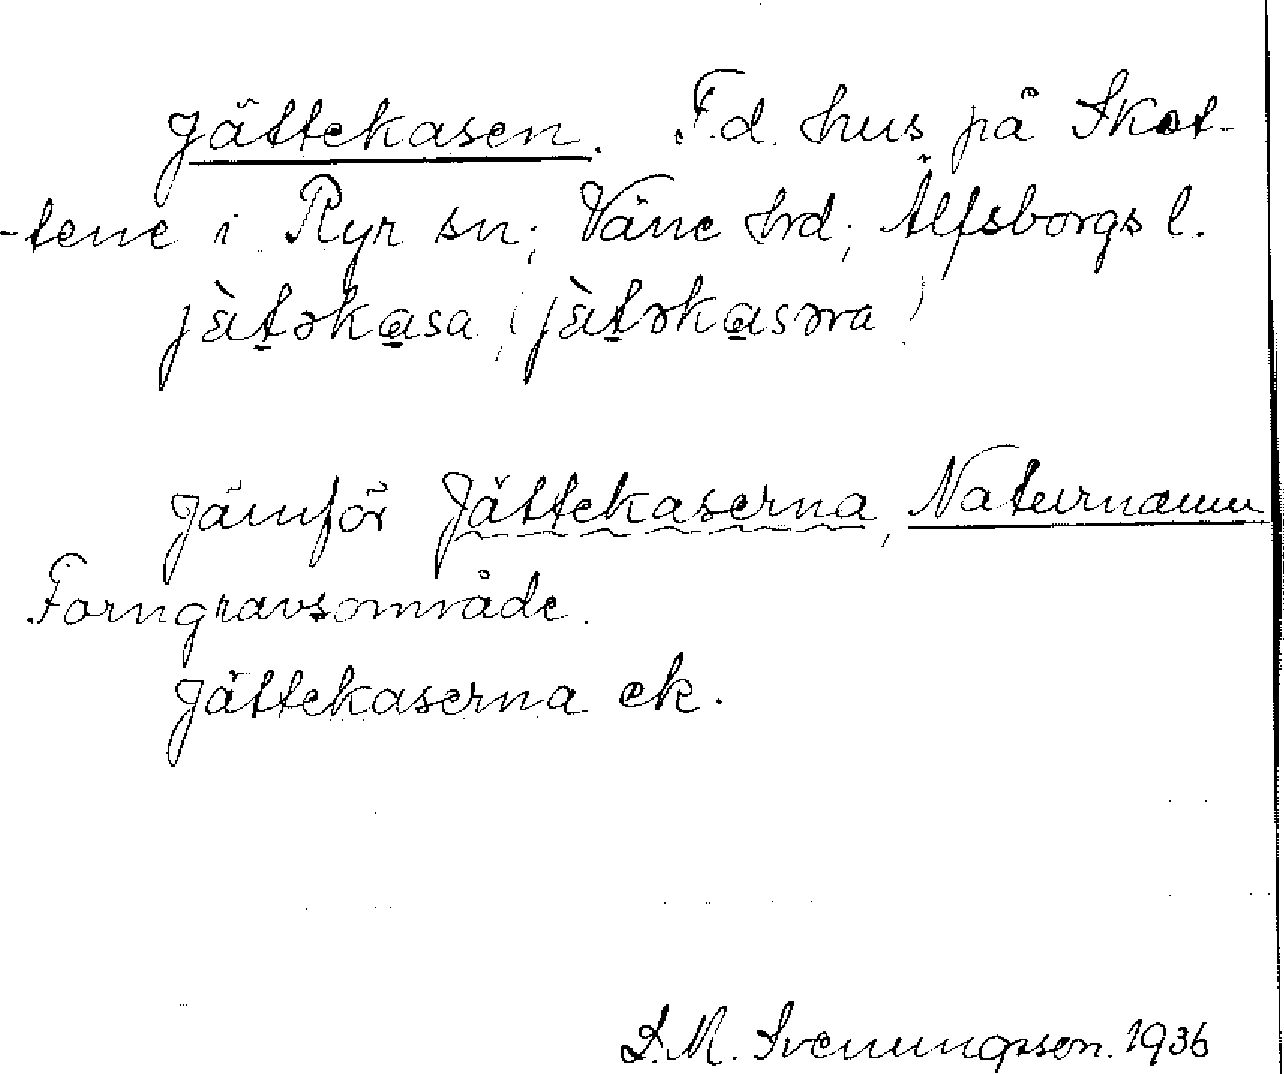 Jättekasen. F.d. hus på Skot-
-tene i Ryr sn; Väne hrd; Älfsborgs l.
jàt̲əka̲sa, (jàt̲əka̲səra)
Jämför Jättekaserna, Naturnamn
Forngravsområde.
Jättekaserna ek.
D.M. Svenungsson. 1936